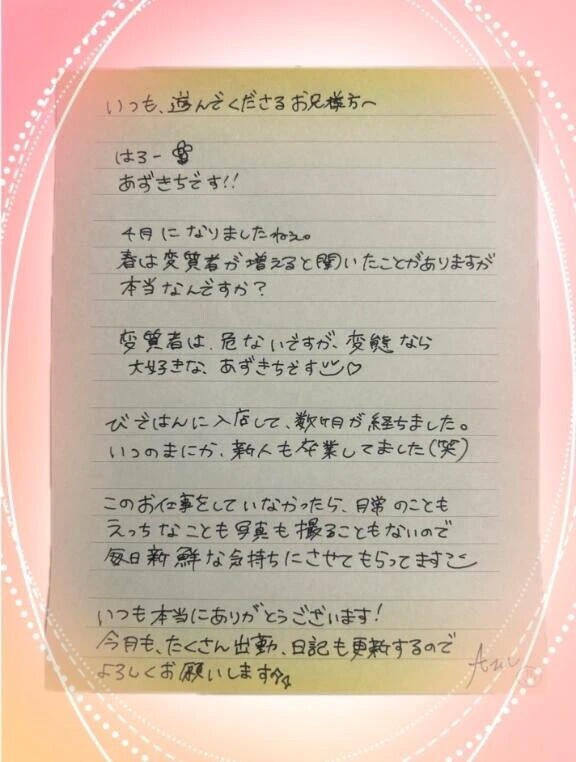 いつも、遊んでくださるお兄様方へ
はろー
あずきちです!!
4月になりましたねぇ。
春は変質者が増えると聞いたことがありますが
本当なんですか?
変質者は、危ないですが、変態なら
大好きな、あずきちです♡
びではんに入店して、数ヶ月が経ちました。
いつのまにか、新人も卒業してました(笑)
このお仕事をしていなかったら、日常のことも
えっちなことも写真も撮ることもないので
毎日新鮮な気持ちにさせてもらってます
いつも本当にありがとうございます!
今月も、たくさん出勤、日記も更新するので
よろしくお願いします